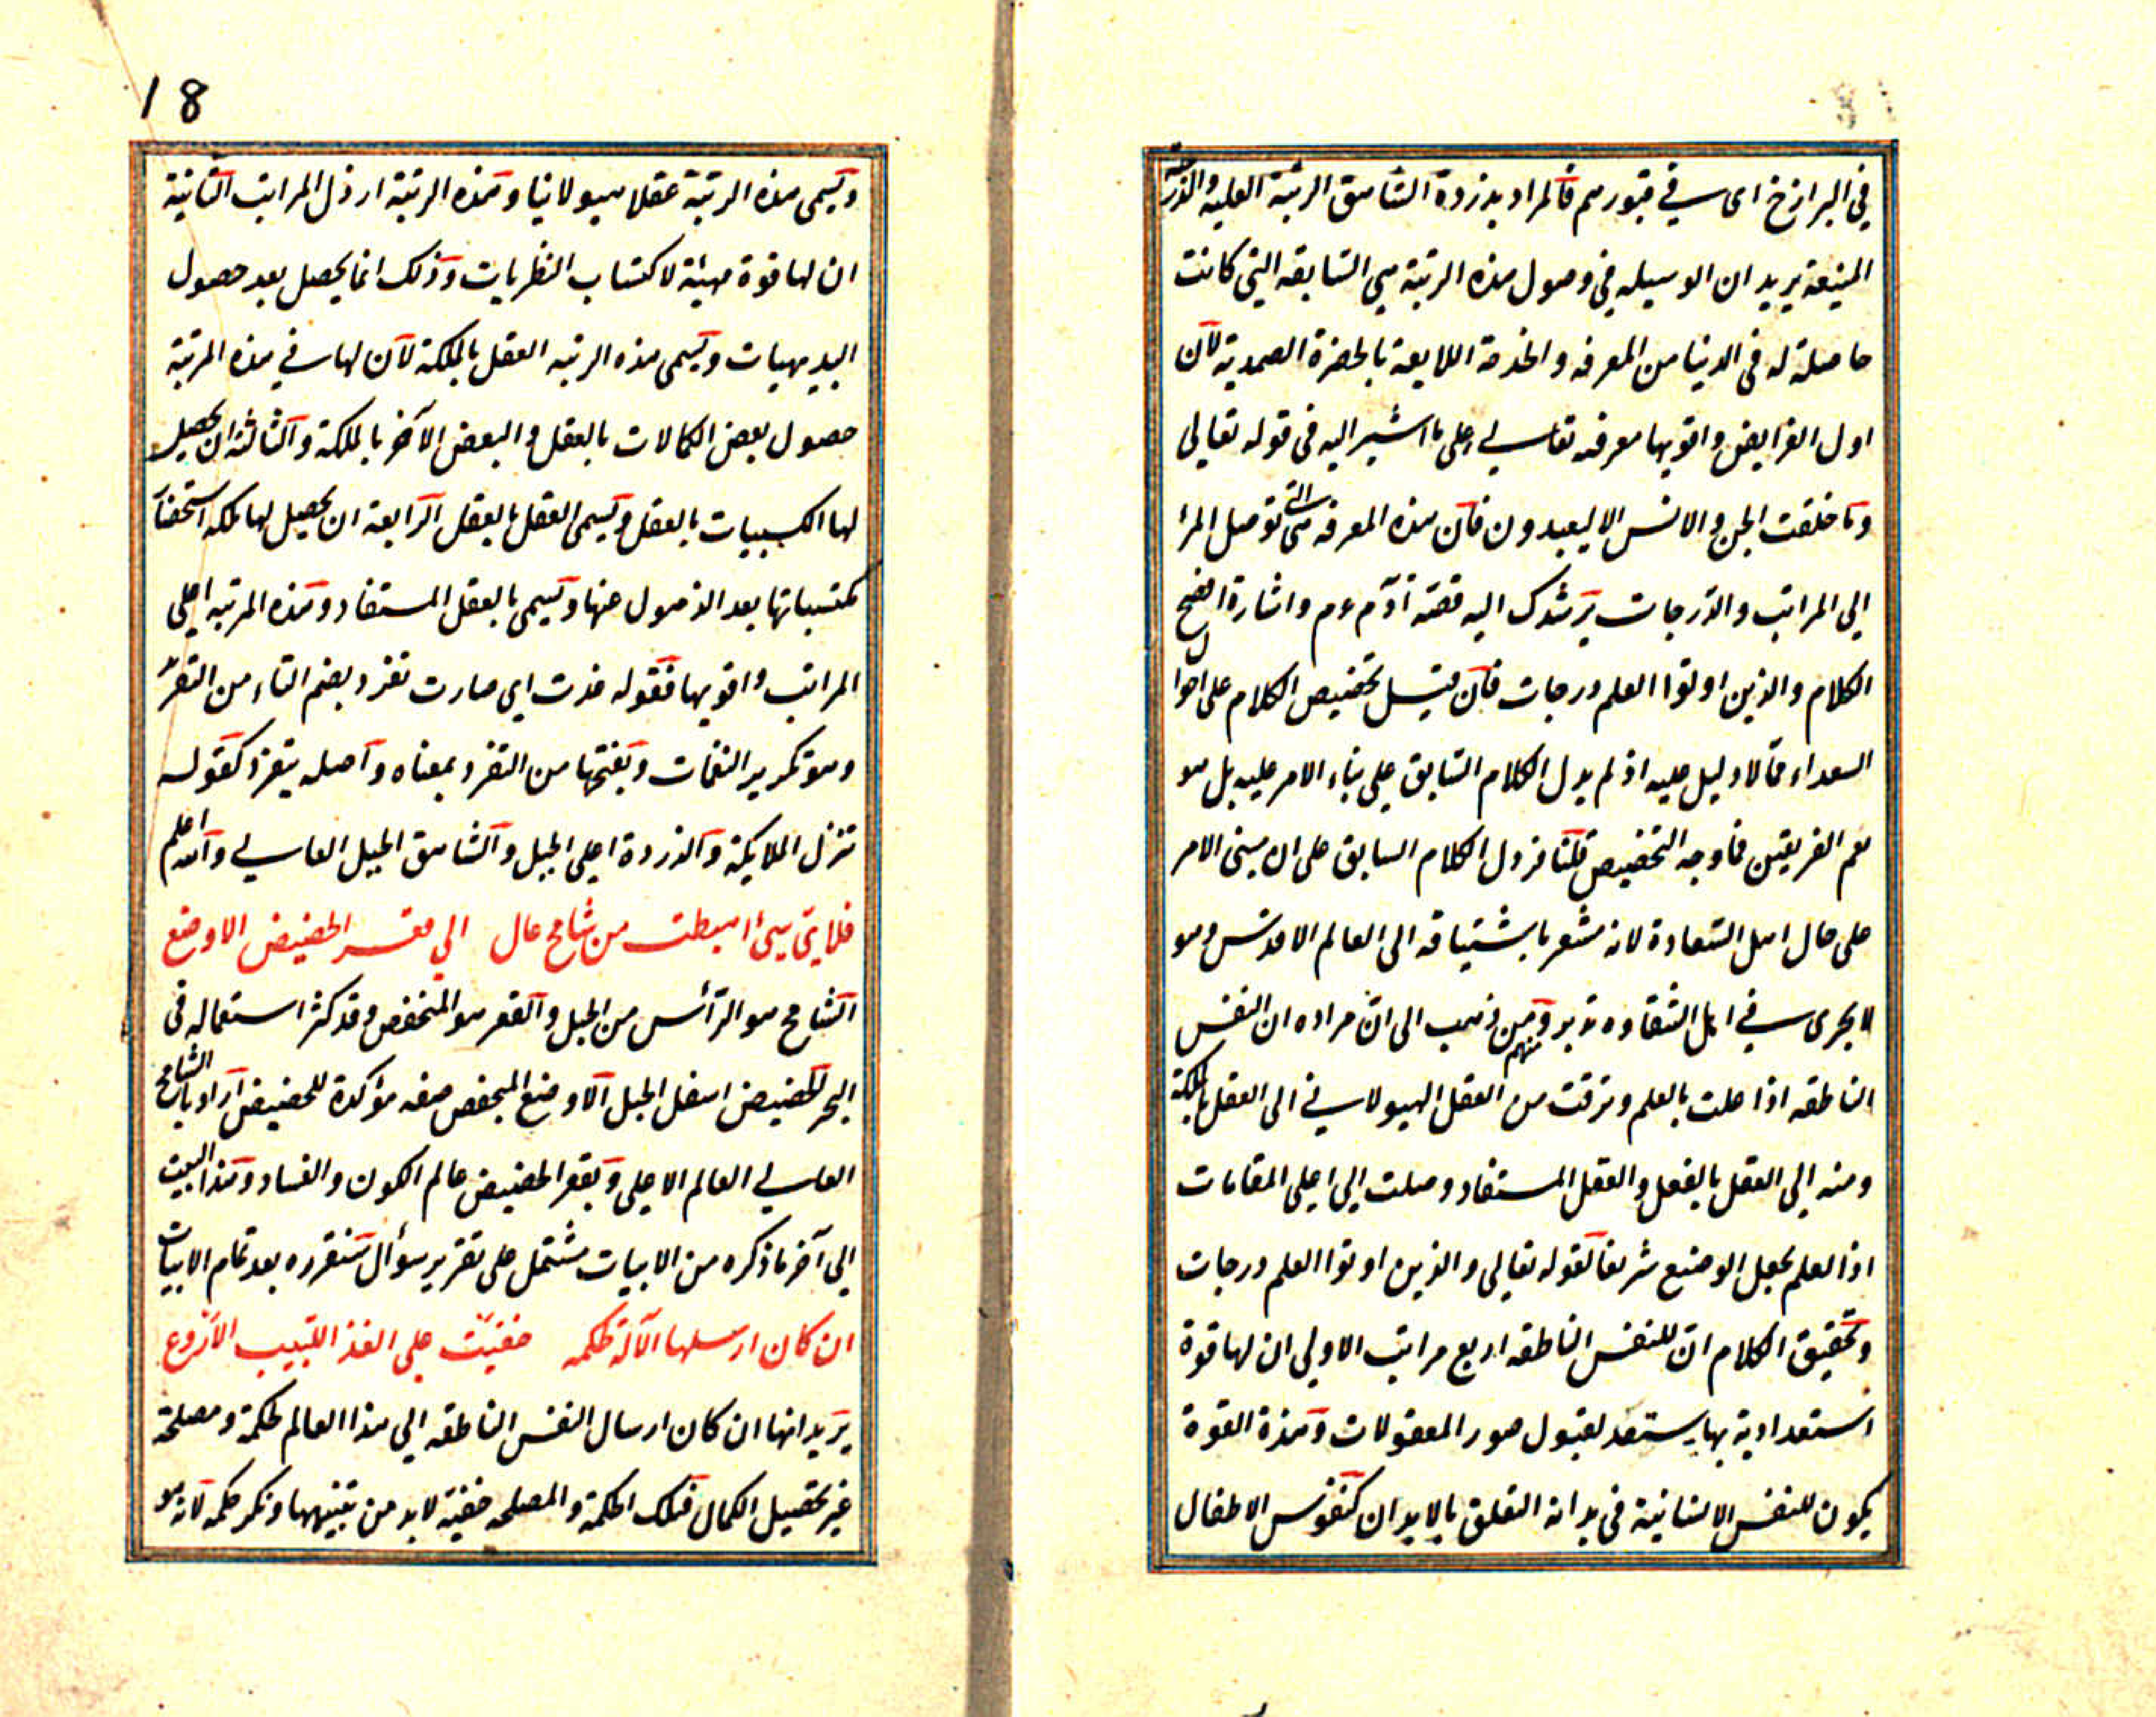 في البرازخ اى في قبورهم فالمراد بذروة الشاهق الرتبة العليه والدرجة
المنيعة يريد ان الوسيله في وصول هذه الرتبة هي السابقه التي كانت
حاصلة له في الدنيا من المعرفه والخدمة اللايقة بالحضرة الصمدية لان
اول الفرايض واقويها معرفته تعالى على ما اشير اليه في قوله تعالى
وما خلقت الجن والانس الا ليعبدون فان هذه المعرفه هي التي توصل المرأ
الى المراتب والدرجات يرشدك اليه قصة آدم عم واشارة افصح
الكلام والذين اوتوا العلم درجات فان قيل تخصيص الكلام على احوال
السعداء مما لا دليل عليه اذ لم يدل الكلام السابق على بناء الامر عليه بل هو
يعم الفريقين فما وجه التخصيص قلنا قد دل الكلام السابق على ان مبنى الامر
على حال اهل السعادة لانه مشعر باشتياقه الى العالم الاقدس وهو
لا يجرى في اهل الشقاوه تدبر ومنهم من ذهب الى ان مراده ان النفس
الناطقه اذا حلت بالعلم وترقت من العقل الهيولانى الى العقل بالملكة
ومنه الى العقل بالفعل والعقل المستفاد وصلت الى اعلى المقامات
اذ العلم يجعل الوضيع شريفا لقوله تعالى والذين اوتوا العلم درجات
وتحقيق الكلام ان للنفس الناطقه اربع مراتب الاولى ان لها قوة
استعدادية بها يستعد لقبول صور المعقولات وهذه القوة
يكون للنفس الانسانية في بدانة التعلق بالابدان كنفوس الاطفال
18
ويسمى هذه الرتبة عقلا هيولانيا وهذه الرتبة ارذل المراتب الثانية
ان لها قوة مهيئة لاكتساب النظريات وذلك انما يحصل بعد حصول
البديهيات ويسمى هذه الرتبه العقل بالملكة لان لها في هذه المرتبة
حصول بعض الكمالات بالعقل والبعض الآخر بالملكة والثالثة ان يحصل
لها الكسبيات بالعقل ويسمى العقل بالعقل الرابعة ان يحصل لها ملكه استحضار
مكتسباتها بعد الذهول عنها ويسمى بالعقل المستفاد وهذه المرتبه اعلى
المراتب واقويها فقوله غدت اي صارت تغرد بضم التاء من التغريد
وهو تكرير النغمات وبفتحها من التغرد بمعناه واصله يتغرد كقوله
تنزل الملايكة والذروة اعلى الجبل والشاهق الجبل العالى والله اعلم
فلاي شيئ اهبطت من شامخ عال الى قعر الحضيض الاوضع
الشامخ هو الرأس من الجبل والقعر هو المنخفض وقد كثر استعماله في
البحر الحضيض اسفل الجبل الاوضع المنخفض صفه مؤكدة للحضيض اراد بالشامخ
العالى العالم الاعلى وبقعر الحضيض عالم الكون والفساد وهذا البيت
الى آخر ما ذكره من الابيات مشتمل على تقرير سؤال سنقرره بعد تمام الابيات
ان كان ارسلها الآله لحكمه خفيت على الفذ اللبيب الاروع
يريد انها ان كان ارسال النفس الناطقه الى هذا العالم لحكمة ومصلحة
غير تحصيل الكمال فتلك الحكمة والمصلحه خفية لابد من تبيينهها ونكر حكمه لانه هو